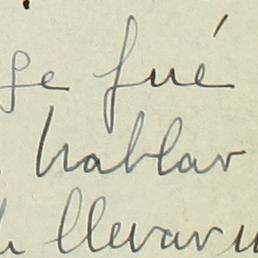 se fué
hablar
llevar